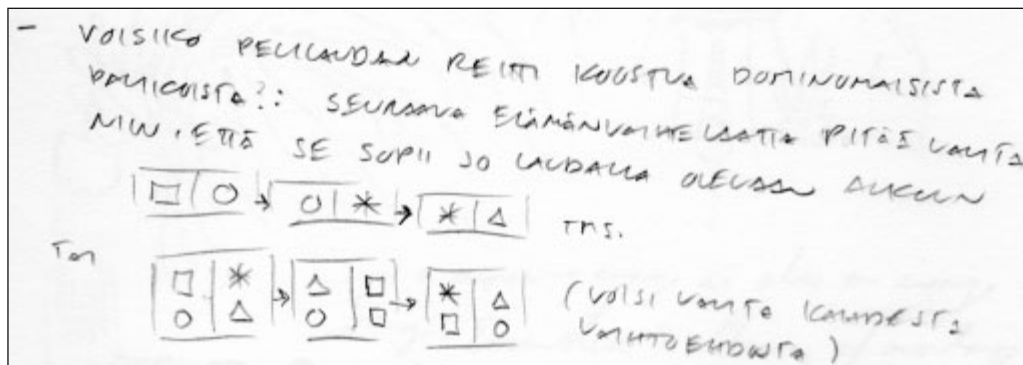 - VOISIKO PELILAUDAN REITTI KOOSTUA DOMINOMAISISTA
PALIKOISTA?: SEURAAVA ELÄMÄNVAIHELAATTA PITÄÄ VALITA
NIIN, ETTÄ SE SOPII JO LAUDALLA OLEVAAN ALKUUN
TMS.
TAI
(VOISI VALITA KAHDESTA
VAIHTOEHDOSTA)